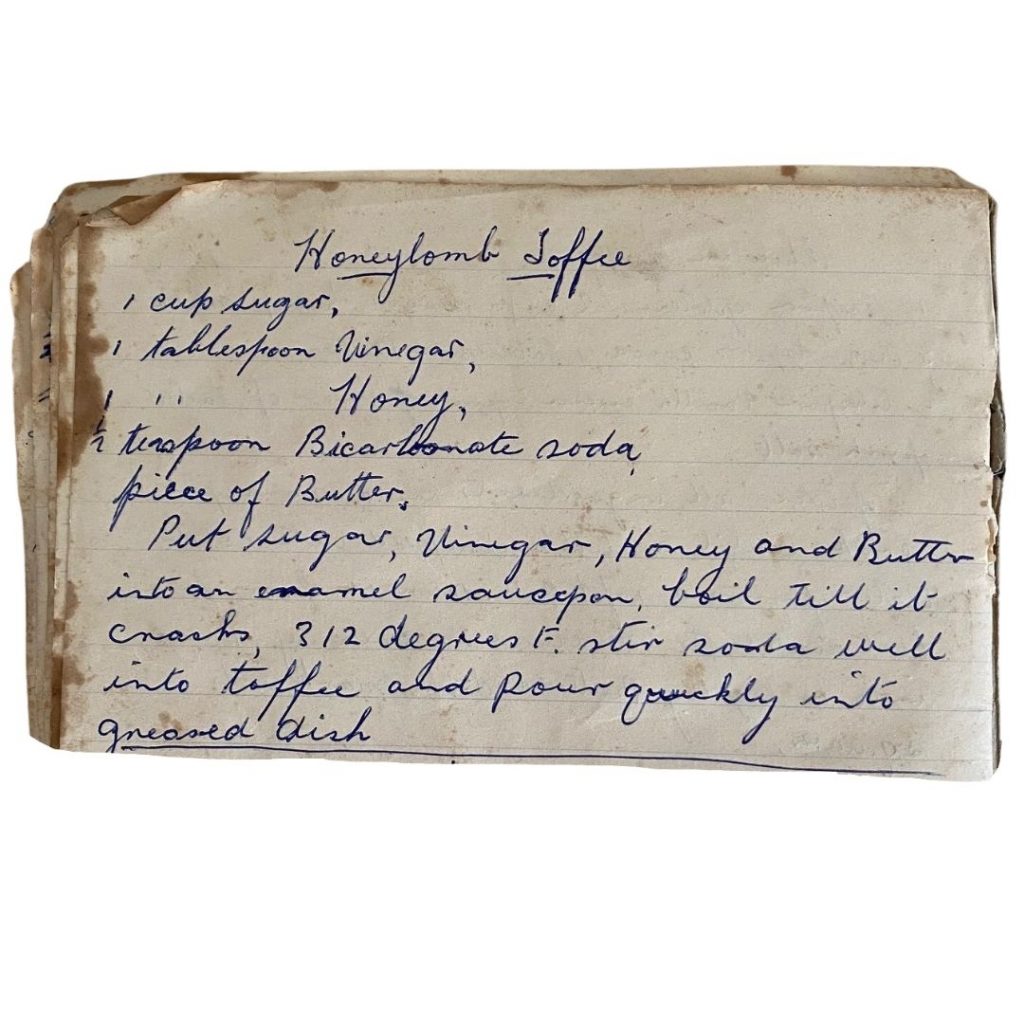 Honeycomb Toffee
1 cup sugar,
1 tablespoon Vinegar,
1 " Honey,
1/2 teaspoon Bicarbonate soda,
piece of Butter,
Put sugar, Vinegar, Honey and Butter
into an enamel saucepon, boil till it
cracks, 312 degrees F. stir soda well
into toffee and pour quickly into
greased dish